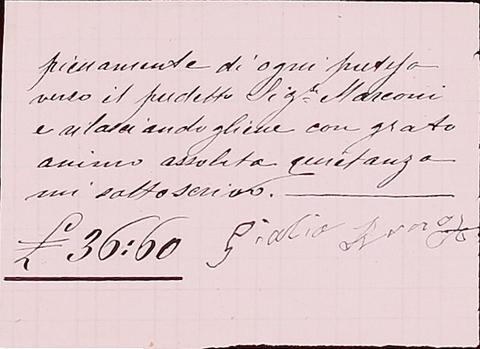 pienamente di ogni pretesa
verso il predetto Sig.r Marconi
e rilasciandogliene con grato
animo assoluta quietanza
mi sottoscrivo.
£ 36:60 Giulio